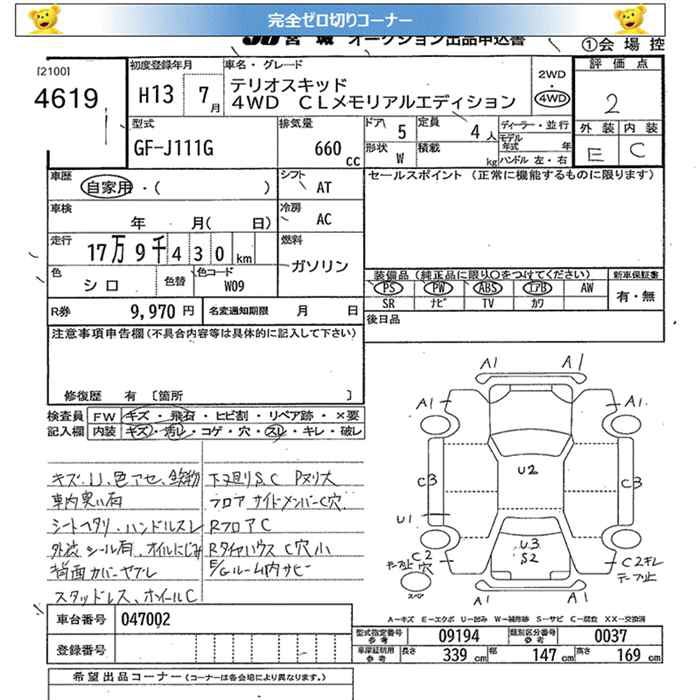 完全ゼロ切りコーナー
JU宮城 オークション出品申込書
①会場控
[2100]
4619
初度登録年月
H13 7月
車名・グレード
テリオスキッド
4WD CLメモリアルエディション
2WD
・
4WD
評価点
2
外装 内装
E C
型式
GF-J111G
排気量
660 cc
ドア 5
定員 4人
形状 W
積載 kg
ディーラー・並行
モデル年式 年
ハンドル 左・右
車歴
自家用・( )
シフト
AT
セールスポイント (正常に機能するものに限ります)
車検
年 月( 日)
冷房
AC
走行
17万9千430km
燃料
ガソリン
色
シロ
色替
色コード
W09
装備品 (純正品に限り○をつけてください)
新車保証書
PS PW ABS エアB AW
有・無
SR ナビ TV カワ
R券 9,970円
名変通知期限 月 日
後日品
注意事項申告欄 (不具合内容等は具体的に記入して下さい)
修復歴 有 [箇所 ]
検査員 FW キズ・飛石・ヒビ割・リペア跡・×要
記入欄 内装 キズ・汚レ・コゲ・穴・スレ・キレ・破レ
キズ、U、色アセ、鉄粉
車内臭い有
シートヘタリ、ハンドルスレ
外装シール有、オイルにじみ
背面カバーヤブレ
スタッドレス、ホイールC
下マ廻りS、C Pヌリ大
フロア サイドメンバーC穴
RフロアC
Rタイヤハウス C穴小
E/Gルーム内サビ
A1 A1
A1 A1
U2
C3 C3
U1
U3
S2
C2
穴
C2キレ
テープ止
A1 A1
A=キズ E=エクボ U=凹み W=補修跡 S=サビ C=腐食 XX=交換済
車台番号 047002
登録番号
型式指定番号 参考 09194
類別区分番号 参考 0037
車庫証明用 参考 長さ 339cm 幅 147cm 高さ 169cm
希望出品コーナー (コーナーは各会場により異なります。)